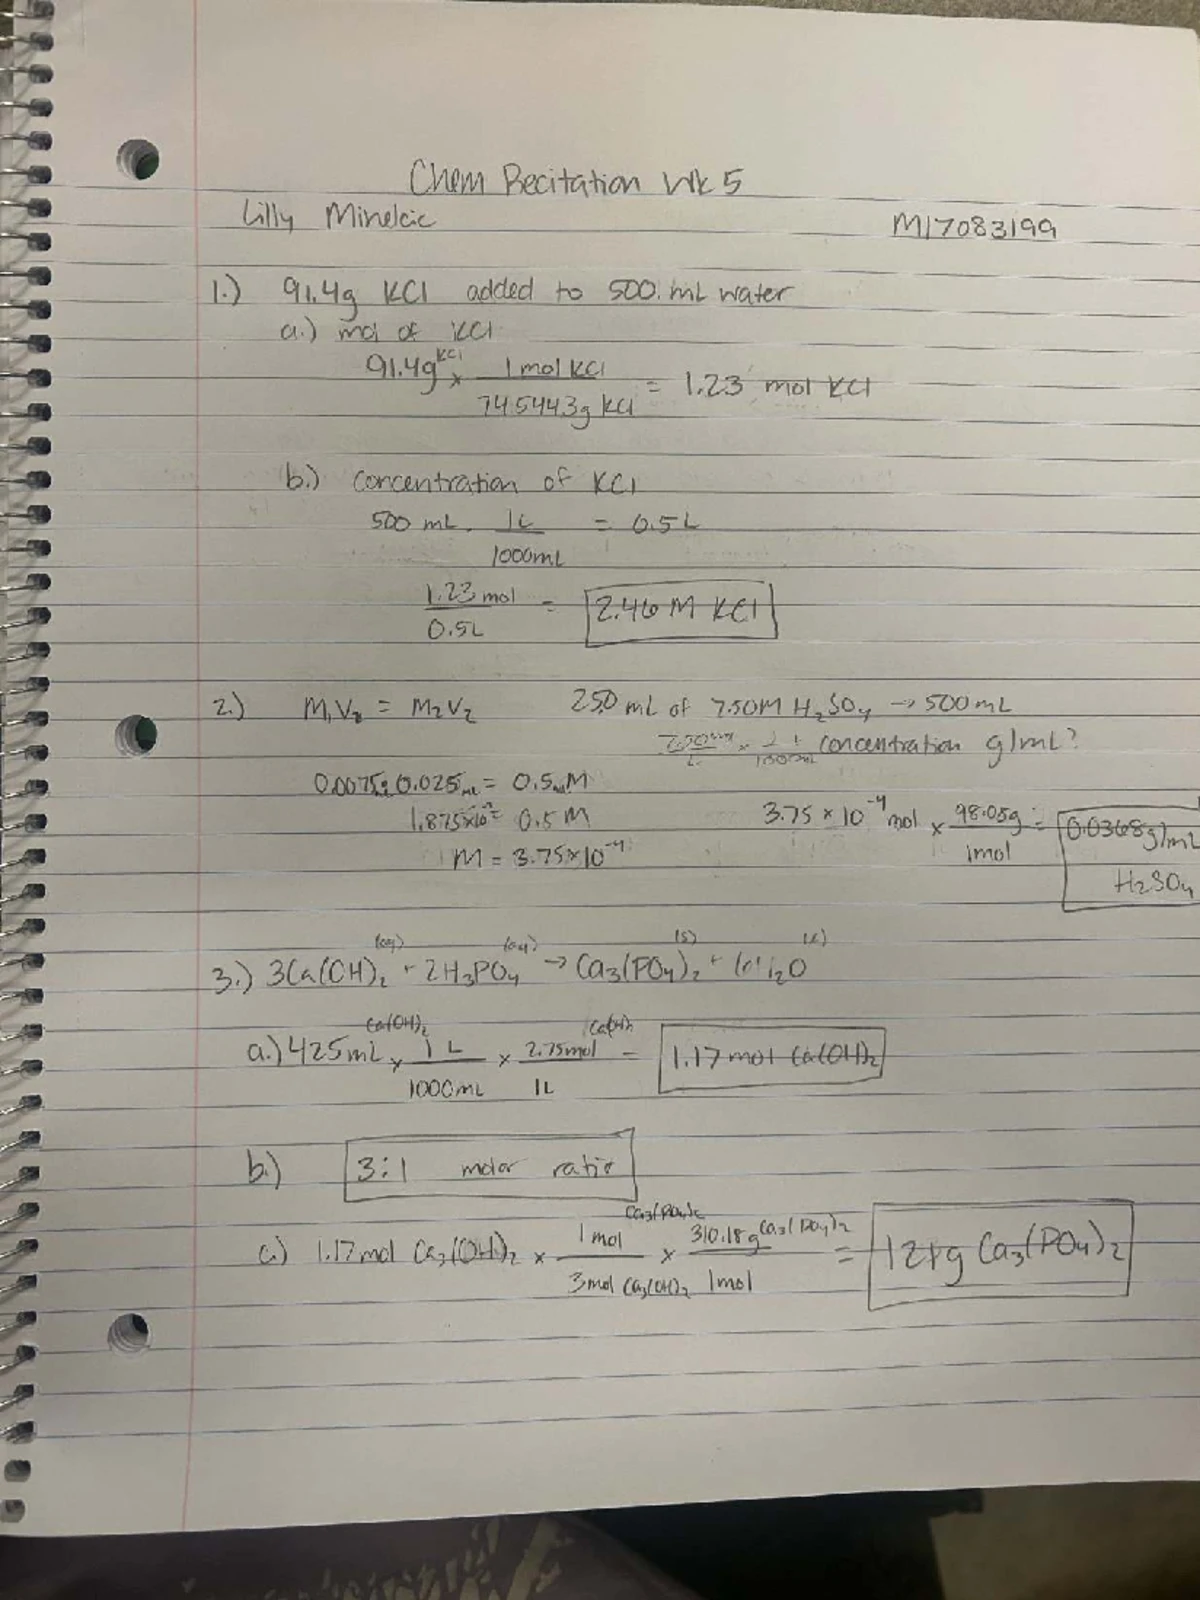 Chem Recitation Wk 5
Lilly Minelcic M17083199
1.) 91.4g KCl added to 500. mL water
a.) mol of KCl
91.4g KCl x 1 mol KCl / 74.5443g KCl = 1.23 mol KCl
b.) Concentration of KCl
500 mL . 1L / 1000mL = 0.5L
1.23 mol / 0.5L = 2.46 M KCl
2.) M₁V₂ = M₂V₂ 25.0 mL of 7.50M H₂SO₄ → 500 mL
concentration g/mL?
0.0075 0.025 = 0.5 M
1.875x10 = 0.5 M 3.75 x 10⁻⁴ mol x 98.05g / 1mol = 0.0368g/mL
M = 3.75x10⁻⁴ H₂SO₄
(aq) (aq) (s) (l)
3.) 3Ca(OH)₂ + 2H₃PO₄ → Ca₃(PO₄)₂ + 6H₂O
a.) 425mL Ca(OH)₂ x 1 L / 1000mL x 2.75mol Ca(OH)₂ / 1L = 1.17 mol Ca(OH)₂
b.) 3:1 molar ratio
c.) 1.17 mol Ca₃(OH)₂ x 1 mol Ca₃(PO₄)₂ / 3 mol Ca₃(OH)₂ x 310.18g Ca₃(PO₄)₂ / 1mol = 121g Ca₃(PO₄)₂